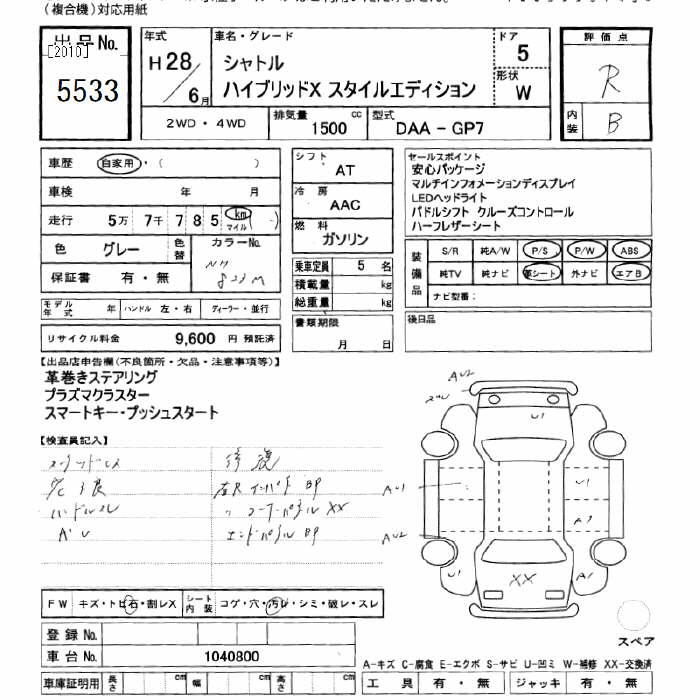 (複合機)対応用紙
出品No.
[2010]
5533
年式
H28/6月
車名・グレード
シャトル
ハイブリッドX スタイルエディション
ドア
5
形状
W
評価点
R
内装
B
2WD・4WD
排気量 1500 cc
型式 DAA-GP7
車歴 自家用・( )
車検 年 月
走行 5万 7千 7 8 5 km マイル ( )
色 グレー 色替
カラーNo.
NH
823M
保証書 有・無
モデル年式 年 ハンドル 左・右 ディーラー・並行
リサイクル料金 9,600 円 預託済
シフト
AT
冷房
AAC
燃料
ガソリン
乗車定員 5 名
積載量 kg
総重量 kg
書類期限
月 日
セールスポイント
安心パッケージ
マルチインフォメーションディスプレイ
LEDヘッドライト
パドルシフト クルーズコントロール
ハーフレザーシート
装備品
S/R 純A/W P/S P/W ABS
純TV 純ナビ 革シート 外ナビ エアB
ナビ型番:
後日品
【出品店申告欄(不良箇所・欠品・注意事項等)】
革巻きステアリング
プラズマクラスター
スマートキー・プッシュスタート
【検査員記入】
修復
ハンドルスレ
AU
コーナーパネル XX
エンドパネル BP
AU2
U1
AU1
U1
A1
AU2
XX
A1
FW キズ・トビ石・割レX
シート内装 コゲ・穴・汚レ・シミ・破レ・スレ
登録No.
車台No. 1040800
車庫証明用 長さ cm 幅 cm 高さ cm
スペア
A-キズ C-腐食 E-エクボ S-サビ U-凹ミ W-補修 XX-交換済
工具 有・無 ジャッキ 有・無